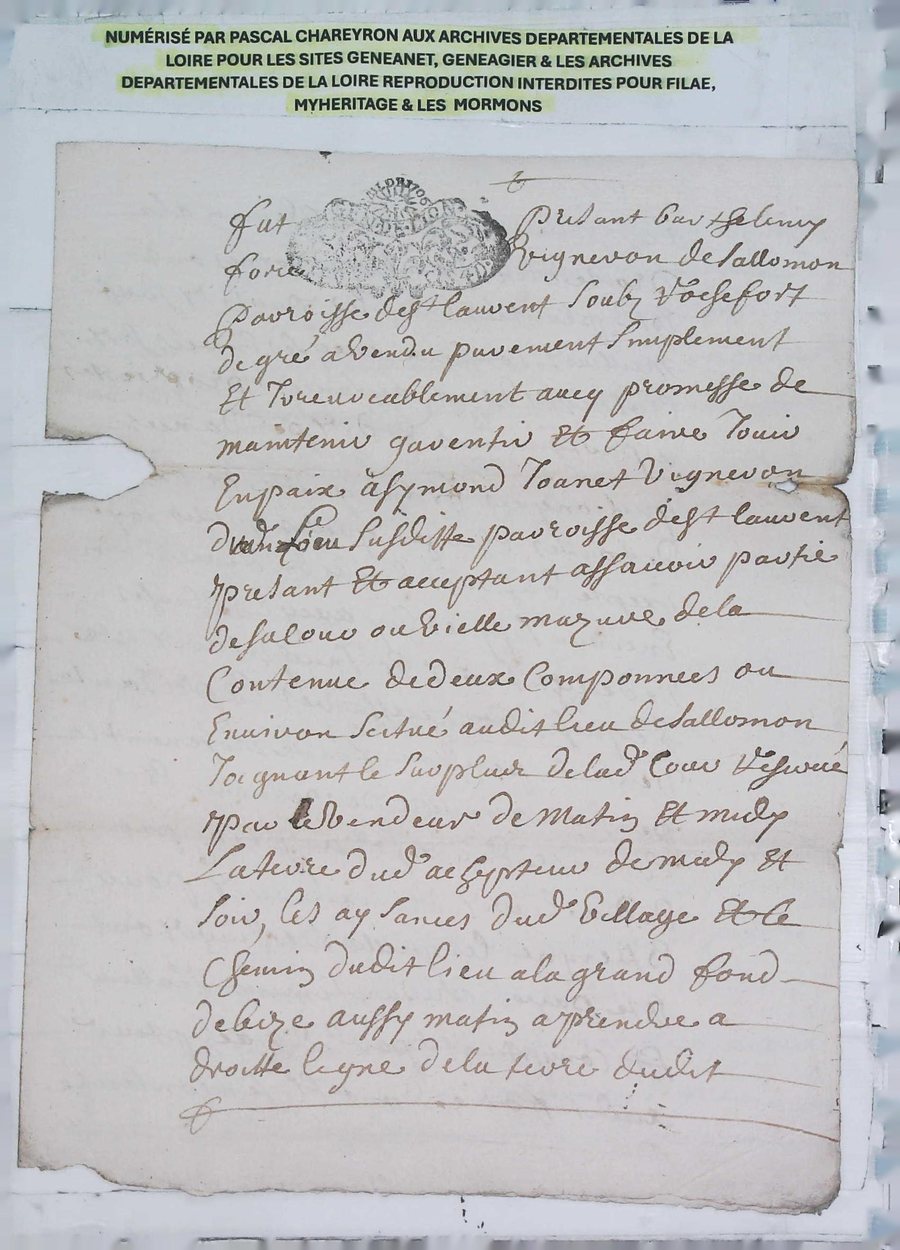 NUMÉRISÉ PAR PASCAL CHAREYRON AUX ARCHIVES DEPARTEMENTALES DE LA
LOIRE POUR LES SITES GENEANET, GENEAGIER & LES ARCHIVES
DEPARTEMENTALES DE LA LOIRE REPRODUCTION INTERDITES POUR FILAE,
MYHERITAGE & LES MORMONS
fut presant barthelemy
fore vigneron de sallomon
parroisse de st laurent soubz rochefort
de gré a vendu purement simplement
et irrevocablement avecq promesse de
maintenir garentir et faire jouir
en paix a symond joanet vigneron
dud lieu susditte parroisse de st laurent
present et acceptant assavoir partie
de sa cour ou vielle mazure de la
contenue de deux componnees ou
environ scitué audit lieu de sallomon
joignant le surplus de lad cour reservé
par le vendeur de matin et midy
la terre dud achepteur de midy et
soir, les aysances dud village et le
chemin dudit lieu a la grand fond
de bize aussy matin a prendre a
droitte ligne de la terre dudit